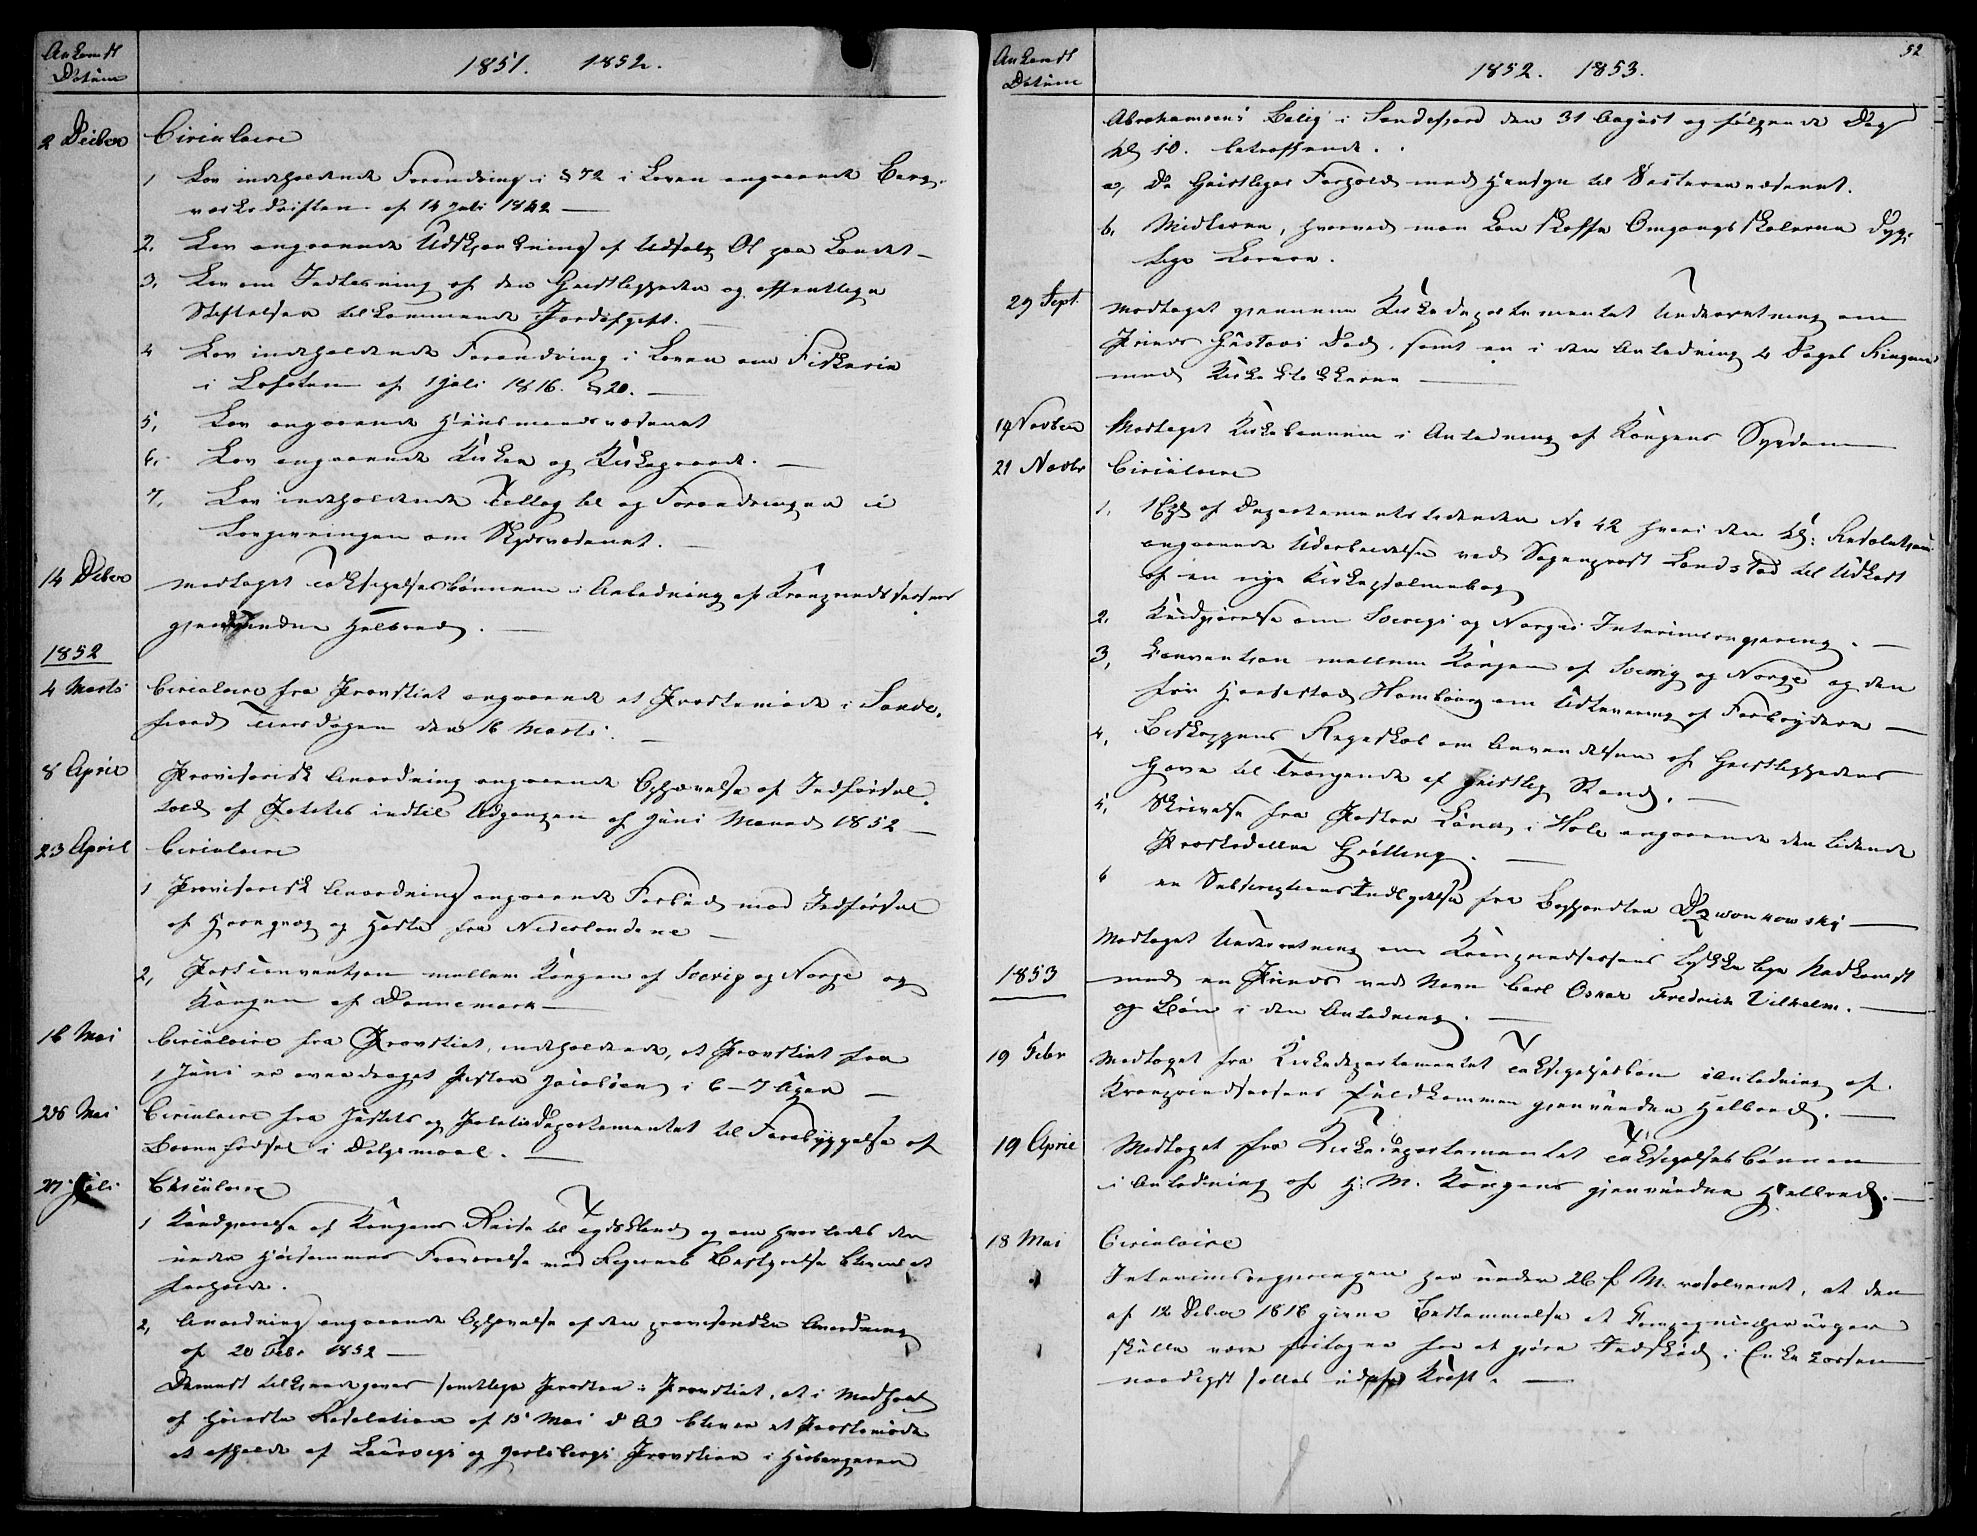 Ankomst
Datum
1851. 1852.
2 Decbr
Circulaire
1 Lov indeholdende Forandring i § 72 i Loven angaaende Berg-
værksdriften af 14 Juli 1842 —
2. Lov angaaende Udskjænkning af Udsalg Øl paa Landet —
3. Lov om Indløsning af den Geistligheden og offentlige
Stiftelser tilkommende Jordafgift. —
4 Lov indeholdende Forandring i Loven om Fiskeriet
i Lofoten af 1 Juli 1816. § 20. —
5. Lov angaaende Huusmandsvæsenet
6. Lov angaaende Kirker og Kirkegaarde. —
7. Lov indeholdende Tillæg til og Forandringer i
Lovgivningen om Skydsvæsenet. —
14 Decbr
Modtaget Taksigelsesbønnen i Anledning af Kronprindsessens
gjenvundne Helbred. —
1852
4 Marts
Circulaire fra Provstiet angaaende et Prestemøde i Sande-
fjord Tiirsdagen den 16 Marts. —
8 April
Provisorisk Anordning angaaende Ophævelse af Indførsel-
told af Potetes indtil Udgangen af Juni Maaned 1852 —
23 April
Circulaire
1 Provisorisk Anordning angaaende Forbud mod Indførsel
af Hornqvæg og Heste fra Nederlandene —
2, Postconvention mellem Kongen af Sverig og Norge og
Kongen af Dannemark —
16 Mai
Circulaire fra Provstiet, indeholdende, at Provstiet fra
1 Juni er overdraget Pastor Jacobsen i
26 Mai
Circulaire fra Justits og Politidepartementet til Forebyggelse af
Barnefødsel i Dølgsmaal. —
27 Juli
Circulaire
1 Kundgjørelse af Kongens Reise til Tydskland og om hvorledes der
under Høisammes Fraværelse med Rigernes Bestyrelse bliver at
forholde.
2, Anordning angaaende Ophævelse af den provisoriske Anordning
af 20 Febr 1852 —
Dernæst tilkjendegives samtlige Prester i Provstiet, at i Medhold
af Høieste Resolution af 15 Mai d A bliver et Prestemøde
at afholde af Laurvigs og Jarlsbergs Provstier i
Ankomst
Datum
1852. 1853.
52
Abrahamsens Bolig i Sandefjord den 31 August og følgende Dag
Kl 10. betræffende.
a, De Geistliges Forhold med Hensyn til
b, Midlerne, hvorved man kan skaffe Omgangsskolerne dyg-
tige Lærere.
29 Sept.
Modtaget gjennem Kirkedepartementet Underretning om
Prinds Gustavs Død, samt en i den Anledning 4 Dages Ringning
med Kirkeklokkerne —
19 Novber
Modtaget Kirkebønnen i Anledning af Kongens Sygdom
21 Novbr
Circulaire
1. 1 Expl af Departementstidenden No 42 hvori den Kgl: Resolution
angaaende Udarbeidelse ved Sogneprest Landstad til Udkast
af en nye Kirkepsalmebog
2. Kundgjørelse om Sverigs og Norges Interimsregjering. —
3, Convention mellem Kongen af Sverrig og Norge og den
frie Hansestad Hamburg om Udlevering af Forbrydere —
4, Biskoppens Regnskab om Anvendelsen af Geistlighedens
Gave til Trængende af geistlig Stand. —
5, Skrivelse fra Pastor i Hole angaaende den lidende
Grøtting. —
6 en Subscriptions Indbydelse fra Boghandler Dzwonkowski —
1853
Modtaget Underretning om Kronprindsessens lykkelige Nedkomst
med en Prinds ved Navn Carl Oskar Fredrik Vilhelm. —
og Bøn i den Anledning. —
19 Febr
Modtaget fra Kirkedepartementet Taksigelsesbøn i Anledning af
Kronprindsessens fuldkommen gjenvundne Helbred. —
19 April
Modtaget fra Kirkedepartementet Taksigelsesbønnen
i Anledning af H. M. Kongens gjenvundne Helbred. —
18 Mai
Circulaire
Interimsregjeringen har under 26 f. M. resolveret, at den
af 12 Decbr 1816 givne Bestemmelse at Compagnichirurger
skulle være fritagne for at gjøre Indskud i Enkekassen
naadigst sættes ud af Kraft. —